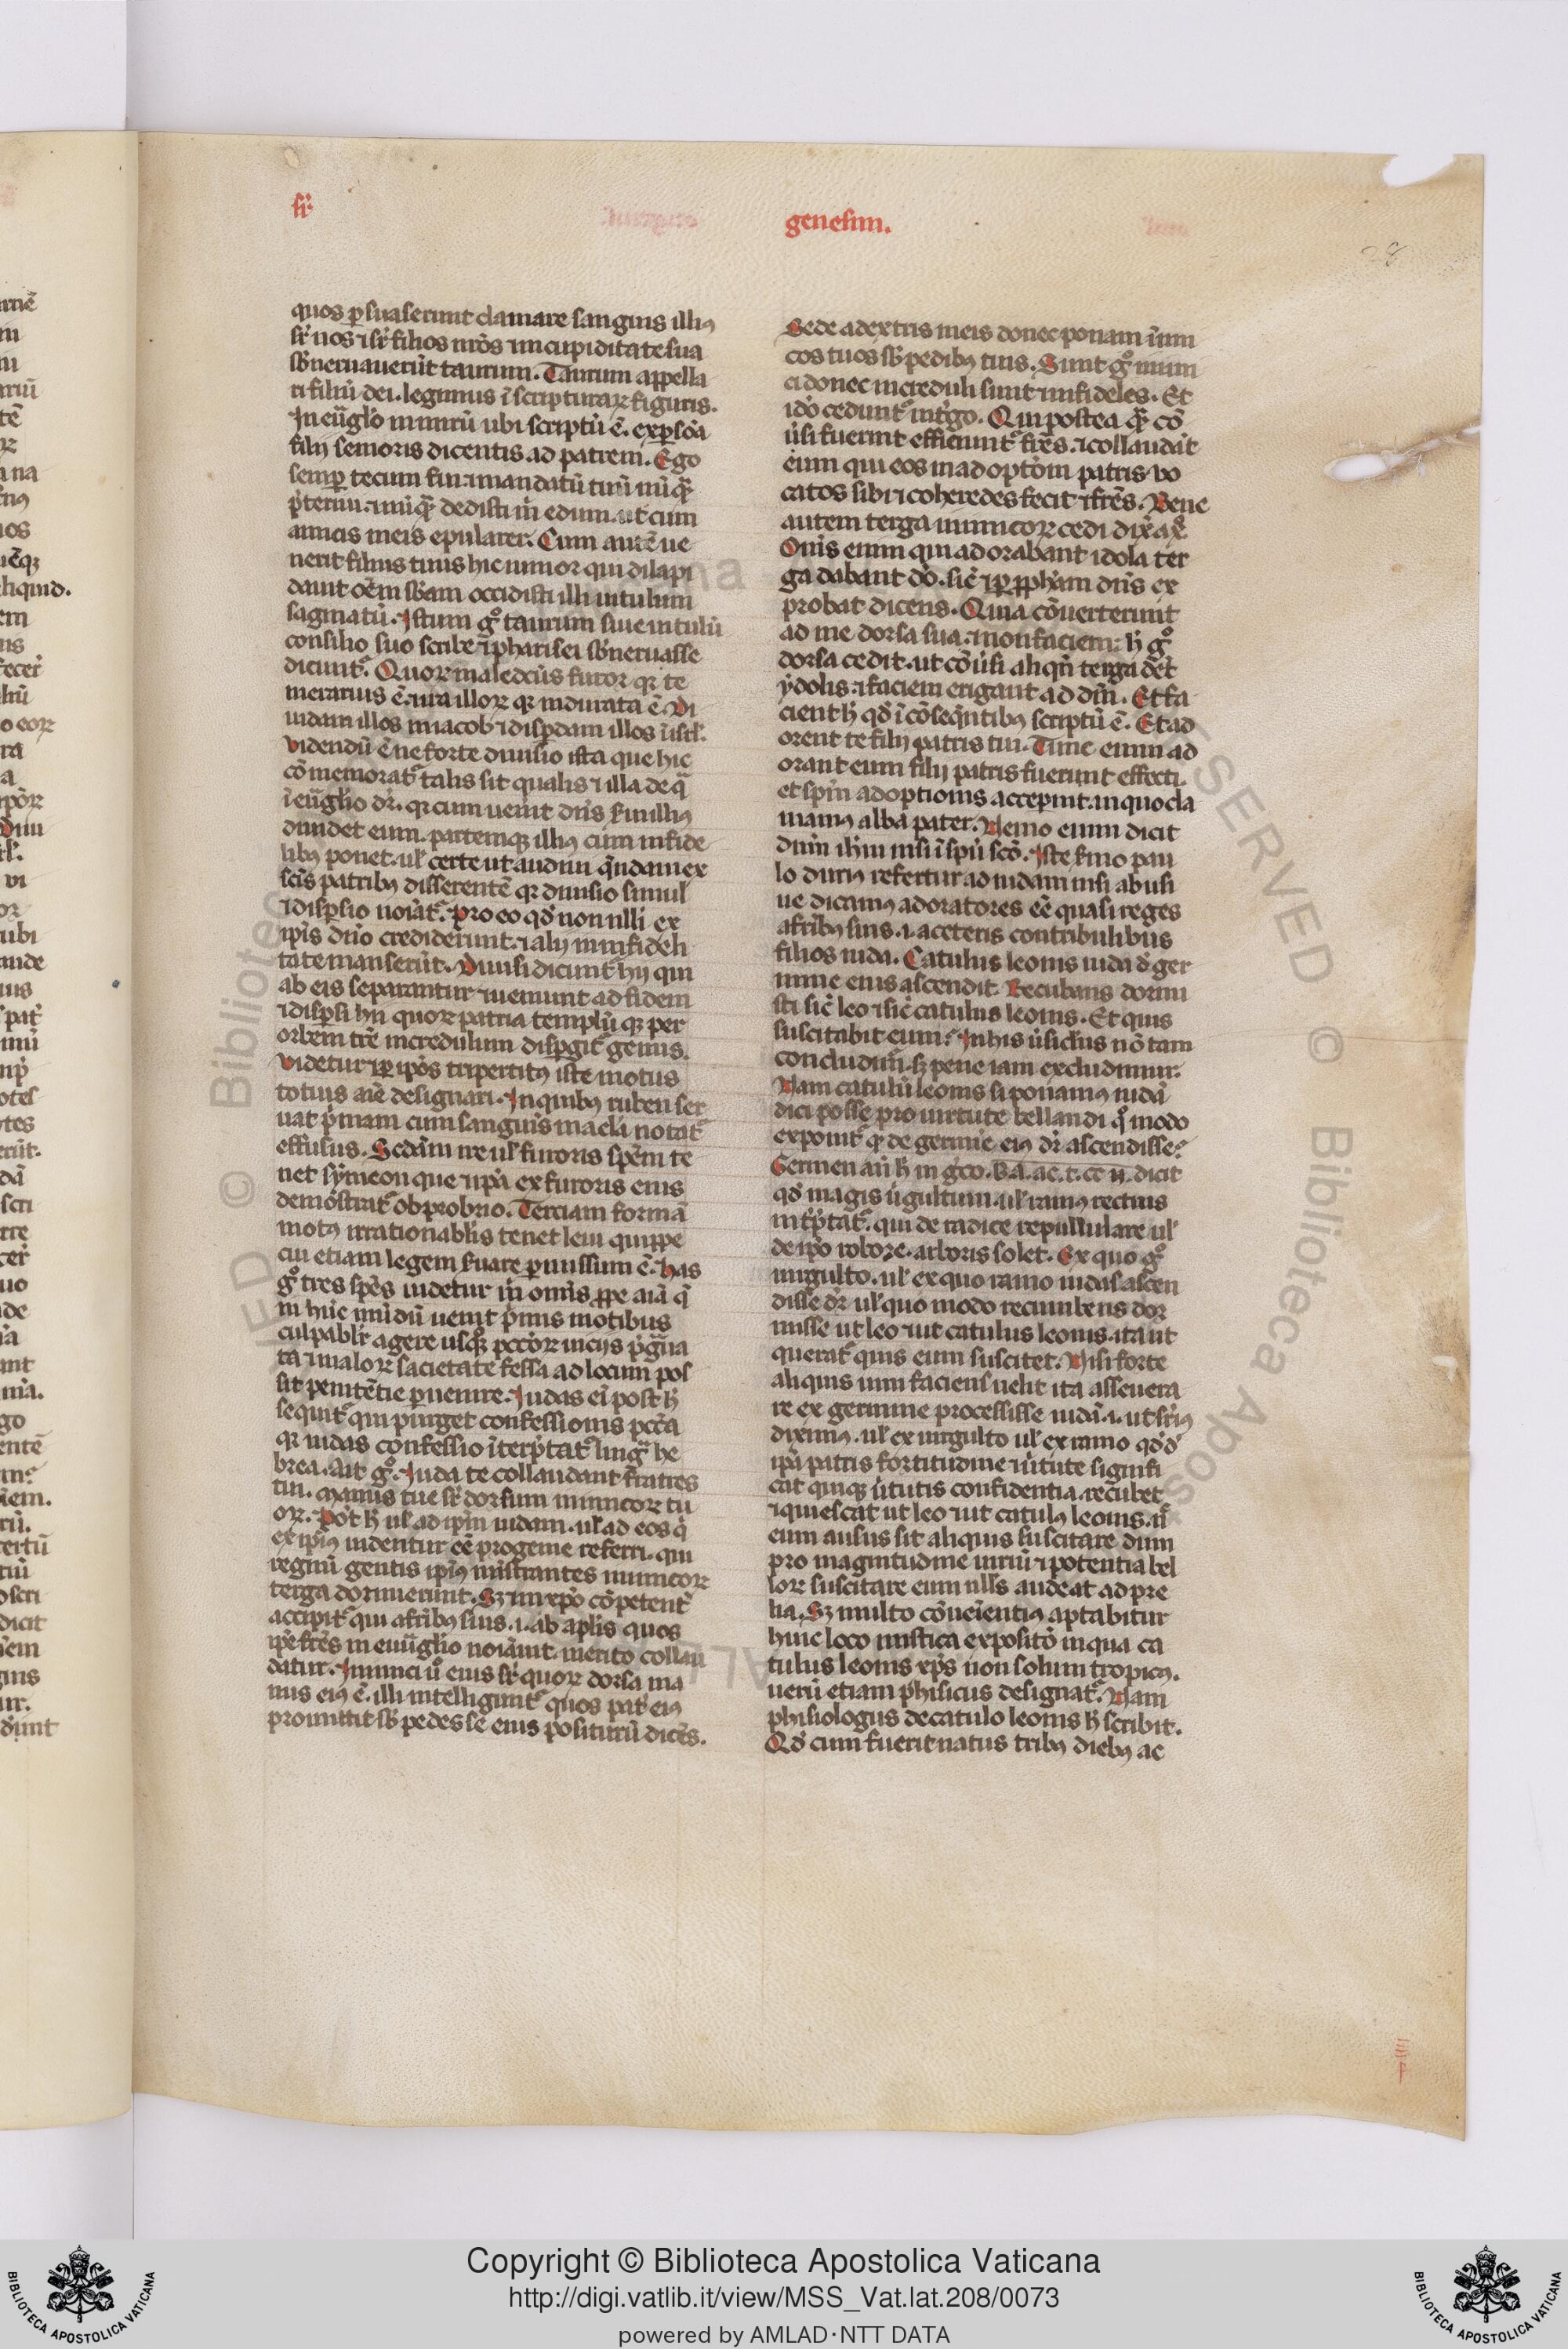 sr̄.
genesim.
28
quos ꝑsuaserunt clamare sanguis illiꝰ
sr̄ nos ⁊ sr̄ filios nr̄os ⁊ in cupiditate sua
sb̄neruauerūt taurum. Taurum appella
ri filiū dei. legimus ī scripturaꝝ figuris.
In eūglio nimirū ubi scriptū ē. ex ꝑsōa
filij senioris dicentis ad patrem. Ego
semꝑ tecum fui. ⁊ mandatū tuū nūqᷓ
p̄teriui. ⁊ nūqᷓ dedisti m̄ edum. ut cum
amicis meis epularer. Cum autē ue
nerit filius tuus hic iunior qui dilapi
dauit oēm sb̄am occidisti illi uitulum
saginatū. Istum gͦ taurum siue uitulū
consilio suo scribe ⁊ pharisei sb̄neruasse
dicunt᷑. Quoꝝ maledcūs furor qꝛ te
merarius ē. ⁊ ira illoꝝ qꝛ indurata ē. Di
uidam illos in iacob ⁊ disꝑdam illos ī isrl̄.
Videndū ē ne forte diuisio ista que hic
cōmemorat᷑ talis sit qualis ⁊ illa de qᷓ
ī eūglio dr̄. qꝛ cum uenit dn̄s ſui illiꝰ
diuidet eum. partemqꝫ illiꝰ cum infide
libꝰ ponet. ul̄ certe ut audiui q̄ndam ex
scīs patribꝰ disserentē qꝛ diuisio simul
⁊ disꝑsio noīat᷑. Pro eo qd̄ non nulli ex
ip̄is dn̄o crediderunt. ⁊ alij in infideli
tate manserūt. Diuisi dicunt᷑ hij qui
ab eis separantur ⁊ ueniunt ad fidem
⁊ disꝑsi hii quoꝝ patria templūqꝫ per
orbem tr̄e incredulum disꝑgit᷑ genus.
Videtur ⁊ ꝑ ip̄os tripertitꝰ iste motus
totius aīe designari. In quibꝰ ruben ser
uat p̄mam cum sanguīs macl̄a notat᷑
effusus. Scd̄am ire ul̄ furoris spēm te
net symeon que ⁊ ip̄a ex furoris eius
demōstrat᷑ obprobrio. Terciam formā
motꝰ irrationabl̄is tenet leui quippe
cui etiam legem ſuare ꝑmissum ē. Has
gͦ tres spēs uidetur m̄ omīs ꝓpe aīa q̄
in hūc mūdū uenit p̄mis motibus
culpabl̄r agere usqꝫ pctōꝝ uicijs p̄gͣua
ta ⁊ maloꝝ sacietate fessa ad locum pos
sit penitētie ꝑuenire. Iudas eī post h̄
sequit᷑ qui purget confessionis pctā
qꝛ iudas confessio īterp̄tat᷑ lingᷓ he
brea. Ait gͦ. Iuda te collaudant fratres
tui. Manus tue sr̄ dorsum inimicoꝝ tu
oꝝ. Pōt h̄ ul̄ ad ip̄m iudam. ul̄ ad eos q̄
ex ip̄iꝰ uidentur eē progenie referri. qui
regnū gentis ip̄iꝰ mīstrantes inimicoꝝ
terga domuerunt. Sꝫ in xp̄o cōpetent᷑
accipit᷑ qui a fr̄ibꝰ suis .i. ab apl̄is quos
ip̄e fr̄es in euūglio noīauit. merito collau
datur. Inimici ūͦ eius sr̄ quoꝝ dorsa ma
nus eiꝰ ē. illi intelligunt᷑ quos pat̄ eiꝰ
promittit sb̄ pedes se eius positurū dicēs.
Sede a dextris meis donec ponam inim
cos tuos sb̄ pedibꝰ tuis. Sunt gͦ inim
ci donec increduli sunt ⁊ infideles. Et
idō cedunt᷑ in t̄go. Qui postea qᷓ cō
ūsi fuerint efficiunt᷑ fr̄es. ⁊ collaudāt
eum qui eos in adoptōm patris uo
catos sibi ⁊ coheredes fecit ⁊ fr̄es. Bene
autem terga inimicoꝝ cedi dix̄
Om̄s enim qui adorabant idola ter
ga dabant dō. sic̄ ⁊ ꝑ ꝓpham dn̄s ex
probat dicens. Quia cōuerterunt
ad me dorsa sua. ⁊ non faciem. h̄ gͦ
dorsa cedit. ut cōūsi aliqn̄ terga dēt
ydolis. ⁊ faciem erigant ad dm̄. Et fa
cient h̄ qd̄ ī cōseq̄ntibꝰ scriptū ē. Et ad
orent te filij patris tui. Tunc enim ad
orant eum filij patris fuerunt effecti.
et spm̄ adoptionis acceperint. in quo cla
mamꝰ abba pater. Nemo enim dicit
dnm̄ ihm̄ nisi ī spū scō. Iste ſmo pau
lo duriꝰ refertur ad iudam nisi ab usi
ue dicamꝰ adoratores eē quasi reges
a fr̄ibꝰ suis .i. a ceteris contribulibus
filios iuda. Catulus leonis iuda d̄ ger
mine eius ascendit. Recubans dormi
sti sic̄ leo ⁊ sic̄ catulus leonis. Et quis
suscitabit eum? In his ūsicl̄us nō tam
concludim̄. sꝫ pene iam excludimur.
Nam catulū leonis si ponamꝰ iudā
dici posse pro uirtute bellandi qͦ modo
exponit᷑ qꝛ de germīe eiꝰ dr̄ ascendisse?
Germen aū h̄ in gͬco. dicit
qd̄ magis ūgultum. ul̄ ramꝰ rectius
int̄p̄tat᷑. qui de radice repullulare ul̄
de ip̄o robore. arboris solet. Ex quo gͦ
uirgulto. ul̄ ex quo ramo iudas ascen
disse dr̄ ul̄ quo modo recumbens dor
misse ut leo ⁊ ut catulus leonis. ita ut
querat᷑ quis eum suscitet. Nisi forte
aliquis uim faciens uelit ita asseuera
re ex germine processisse iudā .i. ut suꝑiꝰ
diximꝰ. ul̄ ex uirgulto ul̄ ex ramo qd̄ d̄
ip̄a patris fortitudine ⁊ ūtute signifi
cat quiqꝫ ūtutis confidentia. recubet
⁊ quiescat ut leo ⁊ ut catulꝰ leonis. n̄
eum ausus sit aliquis suscitare dum
pro magnitudine uiriū ⁊ potentia bel
loꝝ suscitare eum null̄s audeat ad pre
lia. Sꝫ multo cōueīentiꝰ aptabitur
huic loco mistica expositō in qua ca
tulus leonis xp̄s non solum tropicꝰ.
uerū etiam phisicus designat᷑. Nam
phisiologus de catulo leonis h̄ scribit.
Qd̄ cum fuerit natus tribꝰ diebꝰ ac
Copyright © Biblioteca Apostolica Vaticana
http://digi.vatlib.it/view/MSS_Vat.lat.208/0073
powered by AMLAD·NTT DATA
BIBLIOTECA APOSTOLICA VATICANA
BIBLIOTECA APOSTOLICA VATICANA